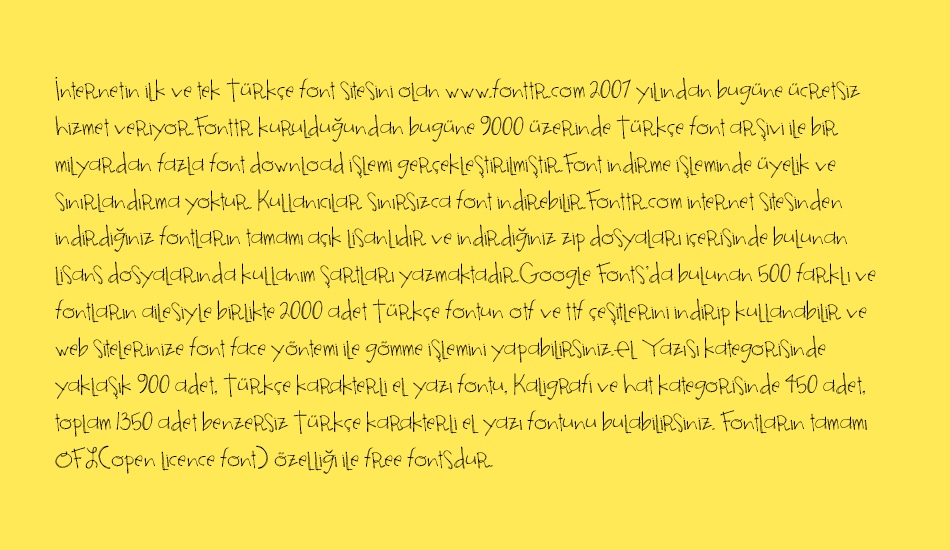 İnternetin ilk ve tek Türkçe font sitesini olan www.fonttr.com 2007 yılından bugüne ücretsiz
hizmet veriyor.Fonttr kurulduğundan bugüne 9000 üzerinde Türkçe font arşivi ile bir
milyardan fazla font download işlemi gerçekleştirilmiştir.Font indirme işleminde üyelik ve
sınırlandırma yoktur. Kullanıcılar sınırsızca font indirebilir.Fonttr.com internet sitesinden
indirdiğiniz fontların tamamı açık lisanlıdır ve indirdiğiniz zip dosyaları içerisinde bulunan
lisans dosyalarında kullanım şartları yazmaktadır.Google Fonts'da bulunan 500 farklı ve
fontların ailesiyle birlikte 2000 adet Türkçe fontun otf ve ttf çeşitlerini indirip kullanabilir ve
web sitelerinize font face yöntemi ile gömme işlemini yapabilirsiniz.El Yazısı kategorisinde
yaklaşık 900 adet, Türkçe karakterli el yazı fontu, Kaligrafi ve hat kategorisinde 450 adet,
toplam 1350 adet benzersiz Türkçe karakterli el yazı fontunu bulabilirsiniz. Fontların tamamı
OFL(open licence font) özelliği ile free fontsdur.